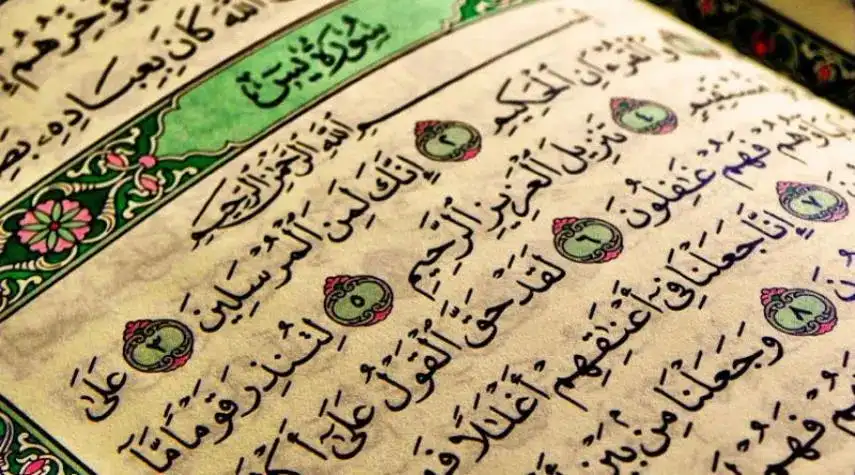 ٱللَّهَ كَانَ بِعِبَادِهِۦ بَصِ
سُورَةُ يسٓ
بِسْمِ ٱللَّهِ ٱلرَّحْمَٰنِ ٱلرَّحِيمِ
وَٱلْقُرْءَانِ ٱلْحَكِيمِ ٢ إِنَّكَ لَمِنَ ٱلْمُرْسَلِينَ ٣ عَلَىٰ
مُّسْتَقِيمٍ ٤ تَنزِيلَ ٱلْعَزِيزِ ٱلرَّحِيمِ ٥ لِتُنذِرَ قَوْمًا مَّآ
فَهُمْ غَٰفِلُونَ ٦ لَقَدْ حَقَّ ٱلْقَوْلُ عَلَىٰٓ أَكْ
٧ إِنَّا جَعَلْنَا فِىٓ أَعْنَٰقِهِمْ أَغْلَٰلًا فَ
٨ وَجَعَلْنَا مِنۢ بَيْنِ